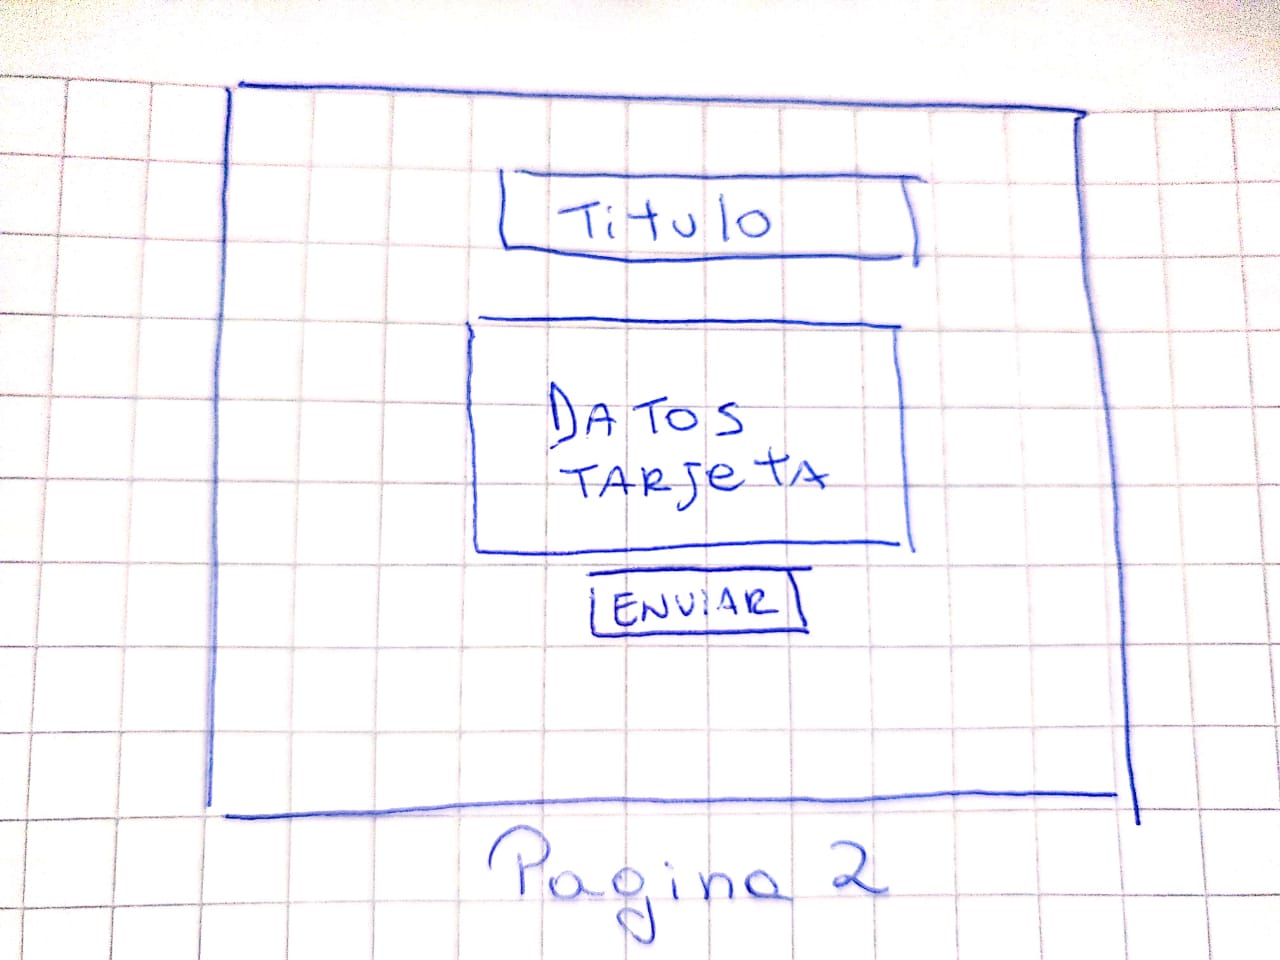 Titulo
DATOS
TARJeTA
ENViAR
Pagina 2